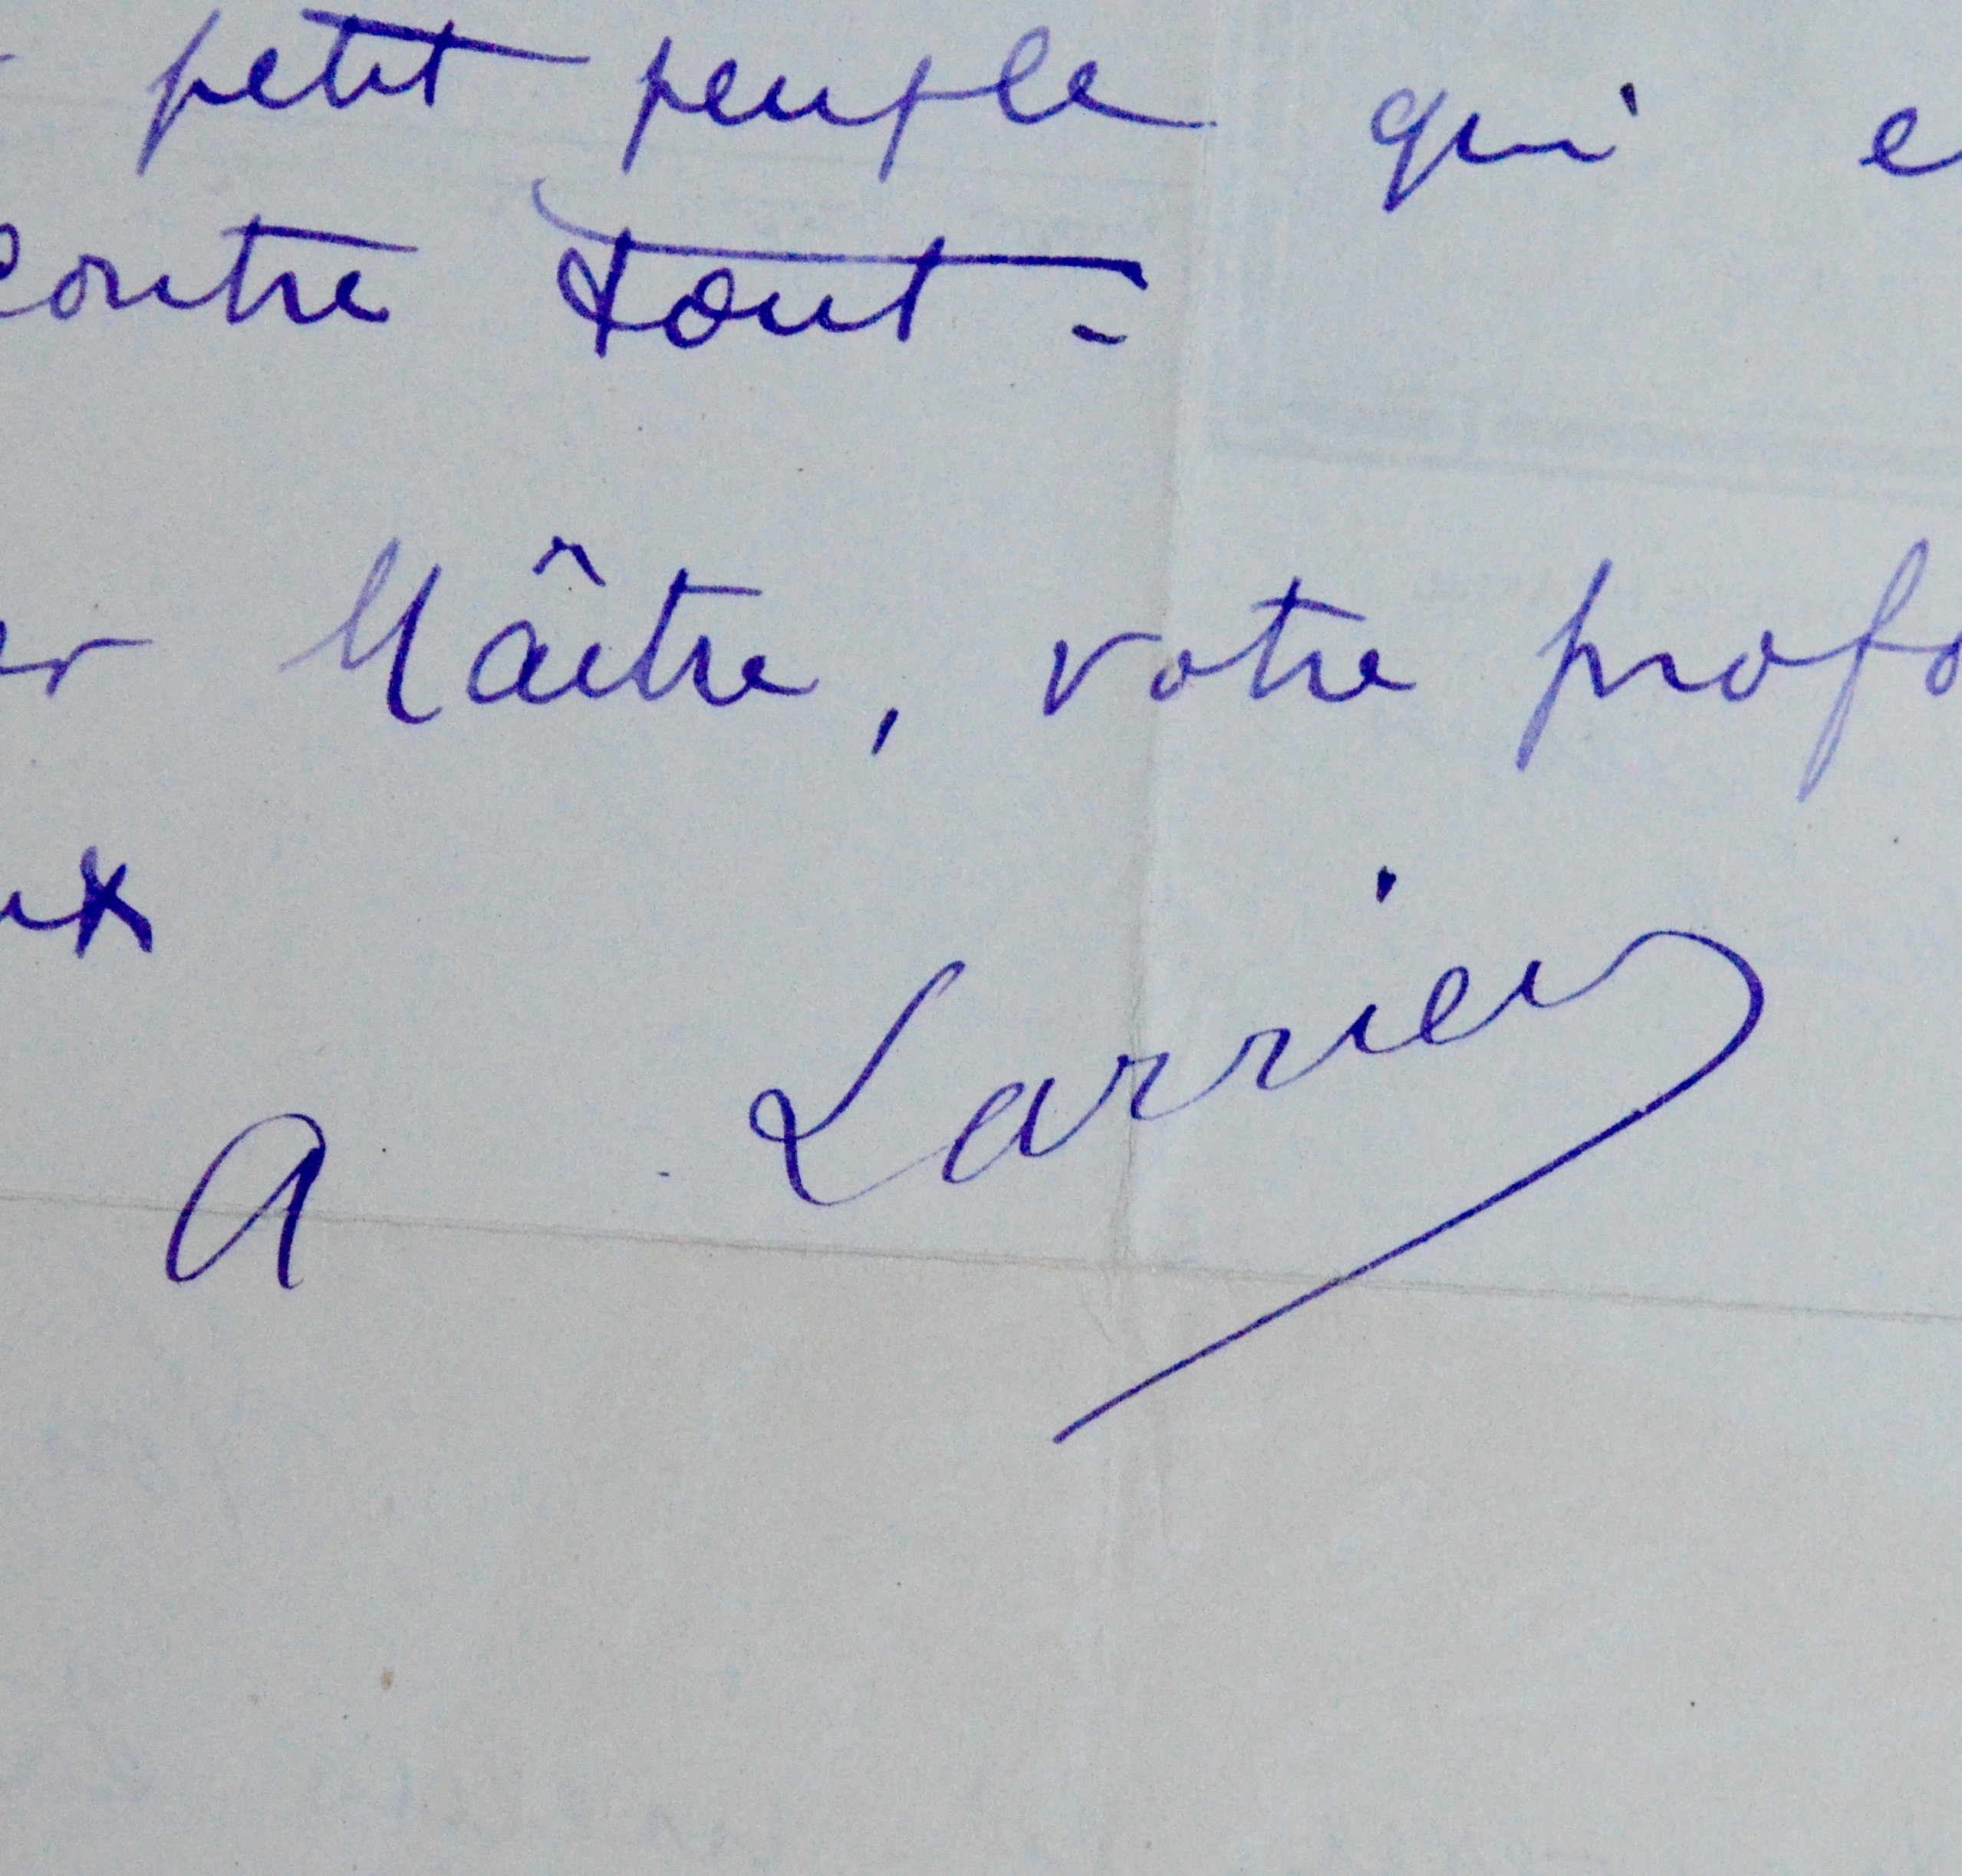 petit peuple qui e
contre tout -
er Maître, votre profo
ux
A Larrieu